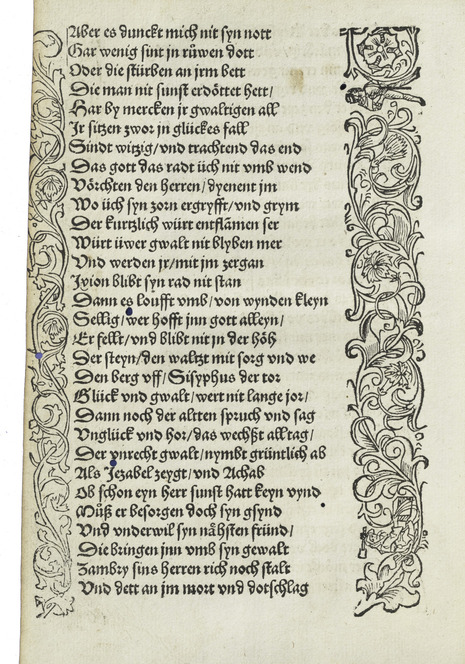 Aber es dunckt mich nit syn nott
Gar wenig sint jn růwen dott
Oder die stürben an jrm bett
Die man nit sunst erdöttet hett/
Har by mercken jr gwaltigen all
Jr sitzen zwor jn glückes fall
Sindt witzig/vnd trachtend das end
Das gott das radt üch nit vmb wend
Vörchten den herren/dyenent jm
Wo üch syn zorn ergryfft/vnd grym
Der kurtzlich würt entflamen ser
Würt üwer gwalt nit blyben mer
Vnd werden jr/mit jm zergan
Jxion blibt syn rad nit stan
Dann es loufft vmb/von wynden kleyn
Sellig/wer hofft jnn gott alleyn/
Er fellt/vnd blibt nit in der höh
Der steyn/den waltzt mit sorg vnd we
Den berg vff/Sisyphus der tor
Glück vnd gwalt/wert nit lange jor/
Dann noch der altten spruch vnd sag
Vnglück vnd hor/das wechßt all tag/
Der vnrecht gwalt/nymbt grüntlich ab
Als Jezabel zeygt/vnd Achab
Ob schon eyn herr sunst hatt keyn vynd
Müß er besorgen doch syn gsynd
Vnd vnderwil syn nähsten fründ/
Die bringen jnn vmb syn gewalt
Zambry sins herren rich noch stalt
Vnd dett an jm mort vnd dotschlag